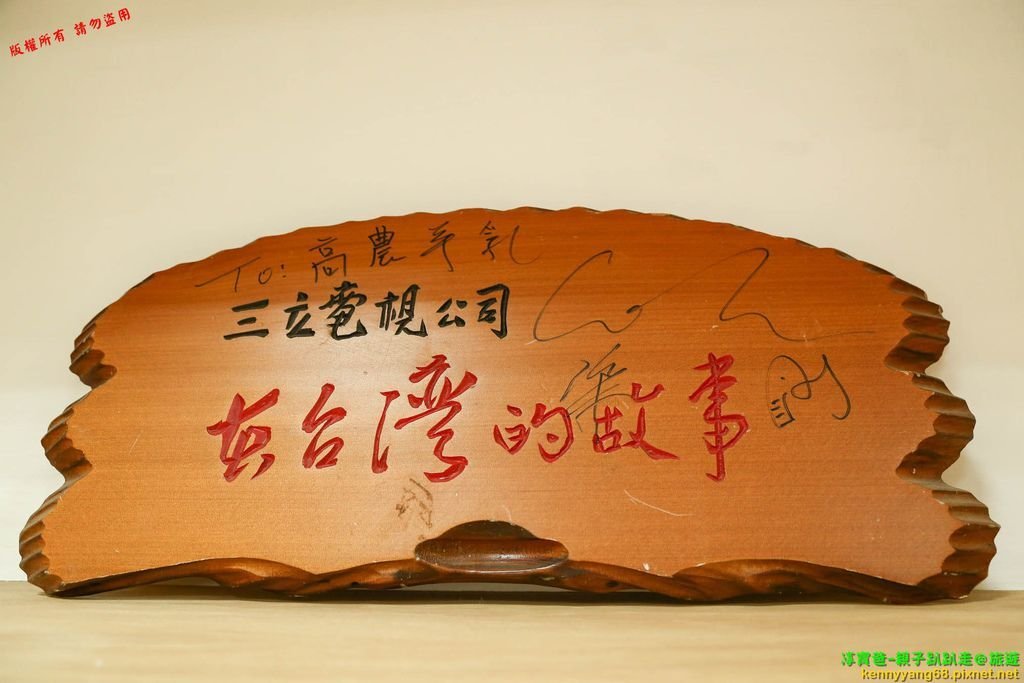 版權所有 請勿盜用
To: 高農平乳
三立電視公司
在台灣的故事
淳寶爸-親子趴趴走@旅遊
kennyyang68.pixnet.net